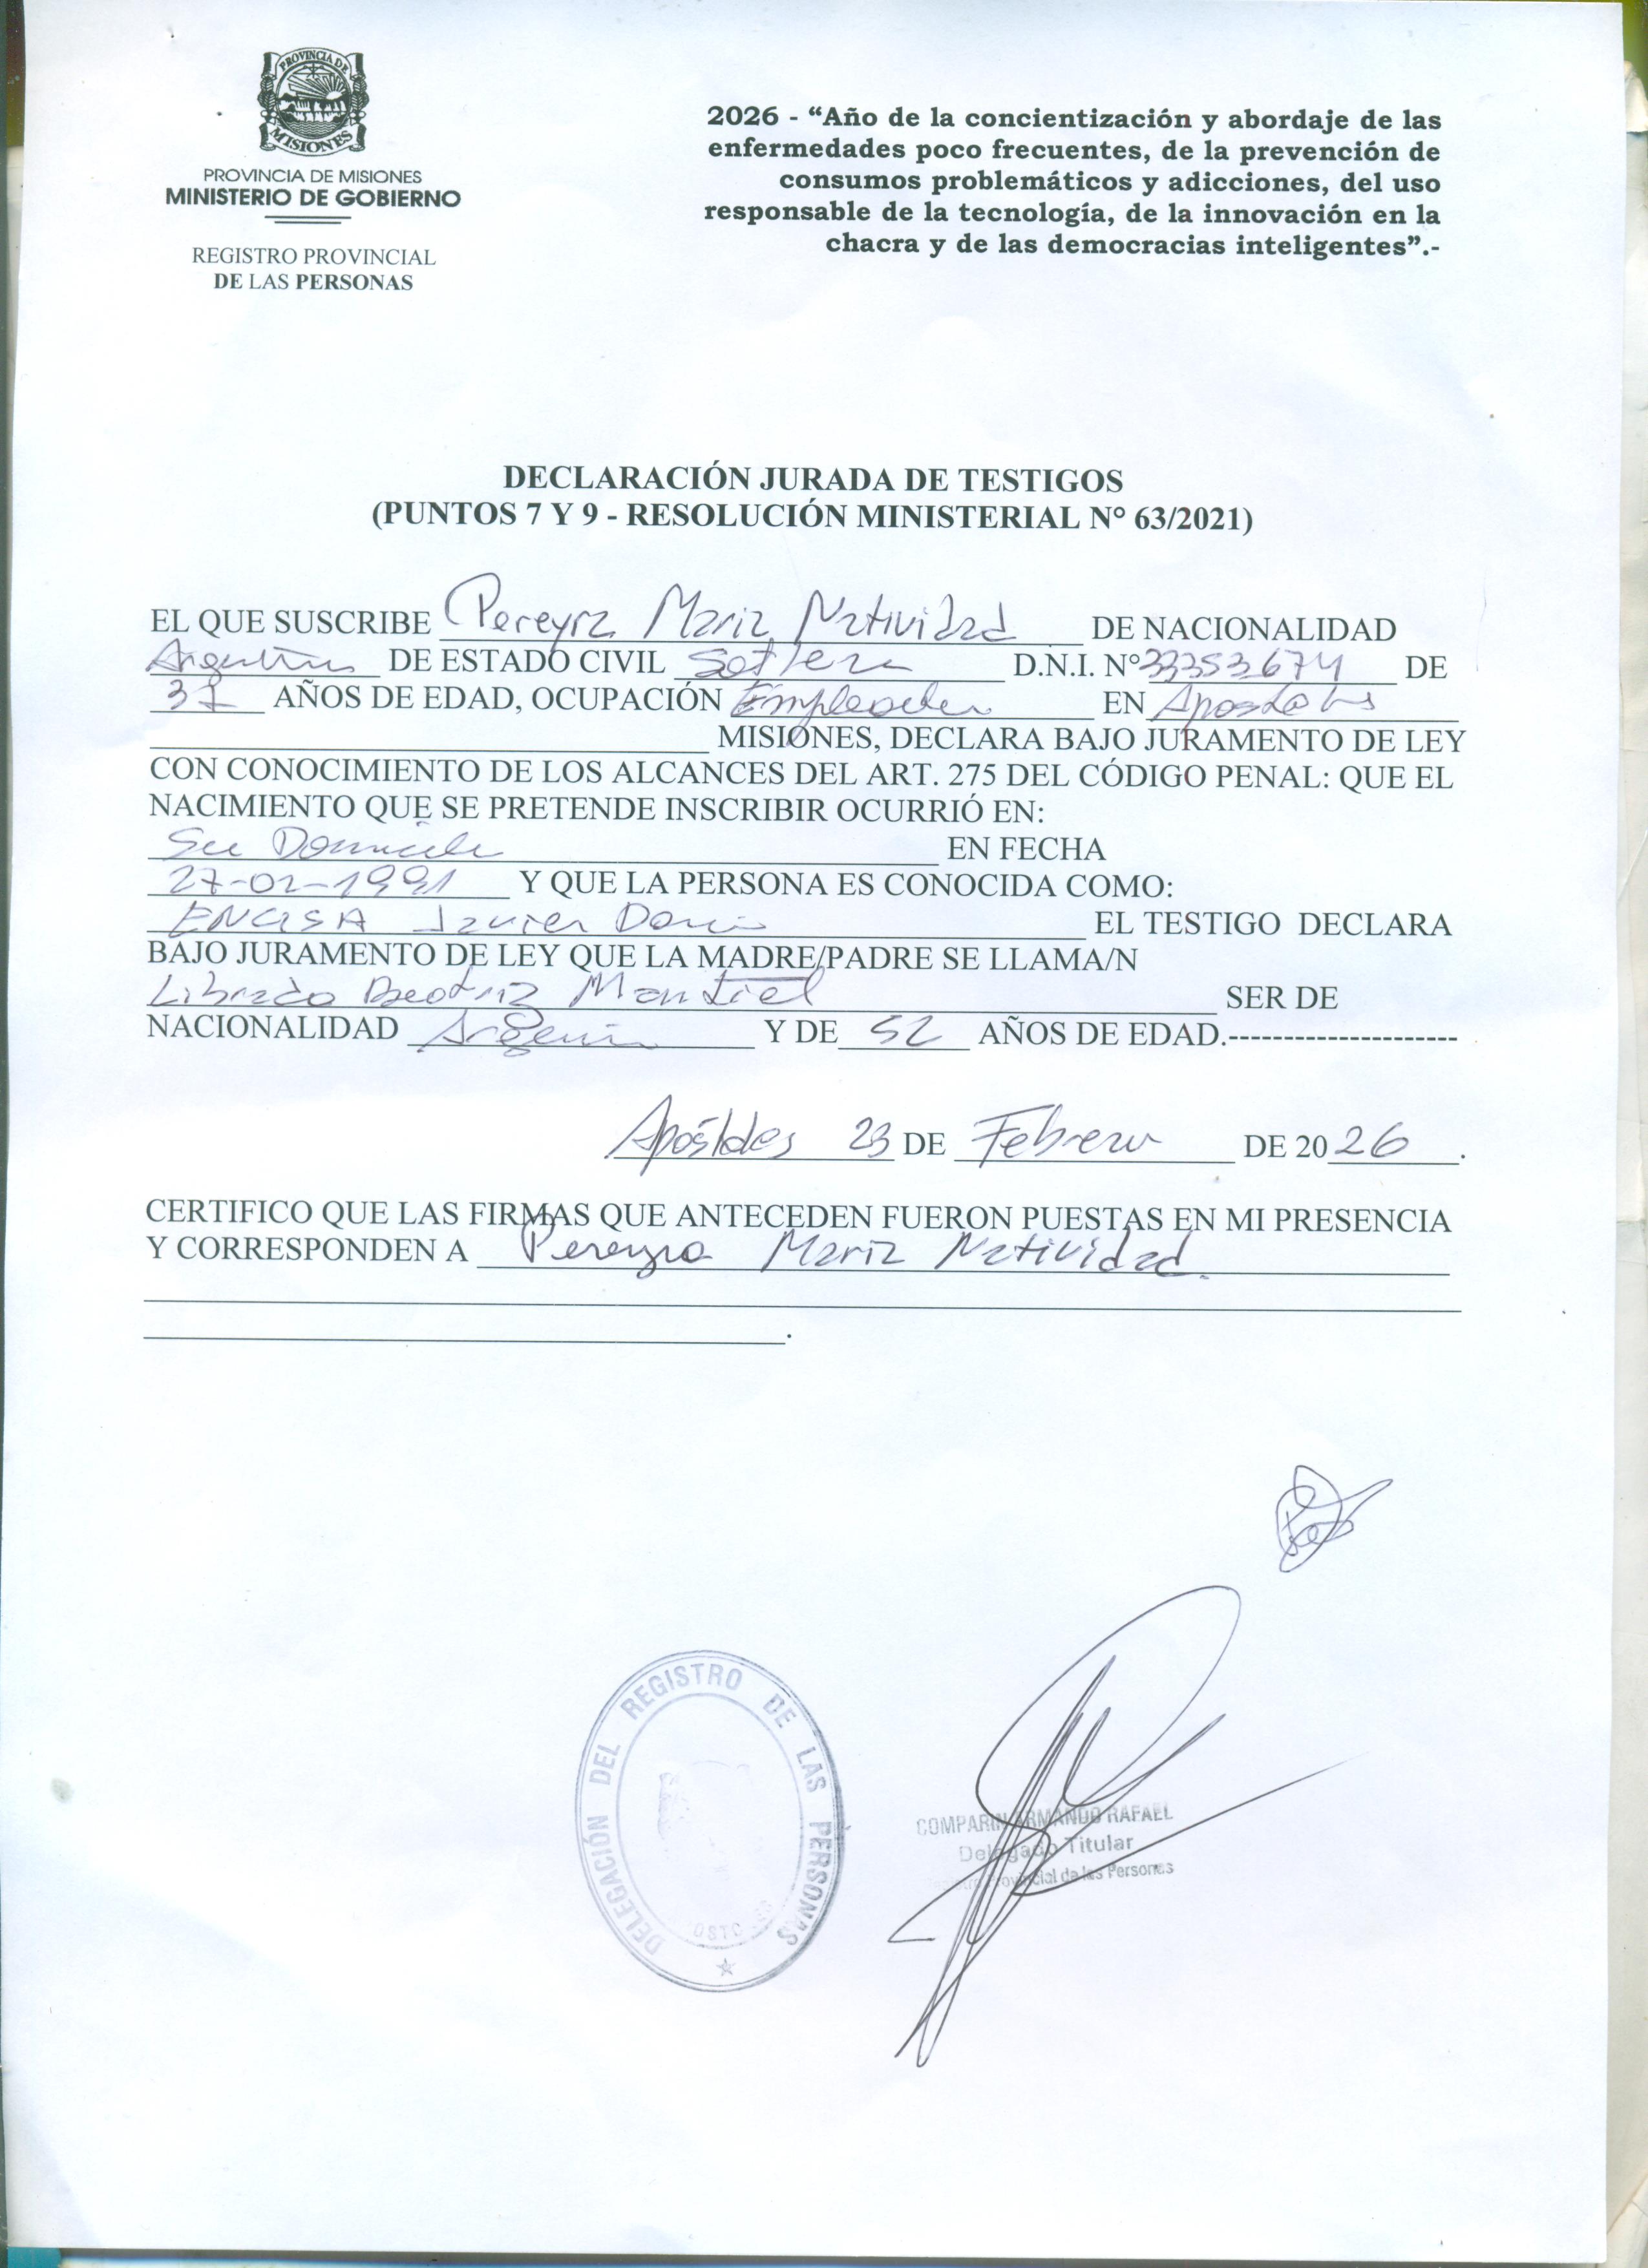 PROVINCIA DE
MISIONES
PROVINCIA DE MISIONES
MINISTERIO DE GOBIERNO
REGISTRO PROVINCIAL
DE LAS PERSONAS
2026 - “Año de la concientización y abordaje de las
enfermedades poco frecuentes, de la prevención de
consumos problemáticos y adicciones, del uso
responsable de la tecnología, de la innovación en la
chacra y de las democracias inteligentes”.-
DECLARACIÓN JURADA DE TESTIGOS
(PUNTOS 7 Y 9 - RESOLUCIÓN MINISTERIAL N° 63/2021)
EL QUE SUSCRIBE Pereyra Maria Natividad DE NACIONALIDAD
Argentina DE ESTADO CIVIL Soltera D.N.I. N° 33353674 DE
37 AÑOS DE EDAD, OCUPACIÓN Empleada EN Apostoles
MISIONES, DECLARA BAJO JURAMENTO DE LEY
CON CONOCIMIENTO DE LOS ALCANCES DEL ART. 275 DEL CÓDIGO PENAL: QUE EL
NACIMIENTO QUE SE PRETENDE INSCRIBIR OCURRIÓ EN:
Su Domicilio EN FECHA
27-02-1991 Y QUE LA PERSONA ES CONOCIDA COMO:
Javier EL TESTIGO DECLARA
BAJO JURAMENTO DE LEY QUE LA MADRE/PADRE SE LLAMA/N
Beatriz Montiel SER DE
NACIONALIDAD Argentina Y DE 52 AÑOS DE EDAD.---------------------
Apóstoles 23 DE Febrero DE 2026.
CERTIFICO QUE LAS FIRMAS QUE ANTECEDEN FUERON PUESTAS EN MI PRESENCIA
Y CORRESPONDEN A Pereyra Maria Natividad.
DELEGACIÓN DEL REGISTRO DE LAS PERSONAS
COMPARIN ARMANDO RAFAEL
Delegado Titular
Provincial de las Personas